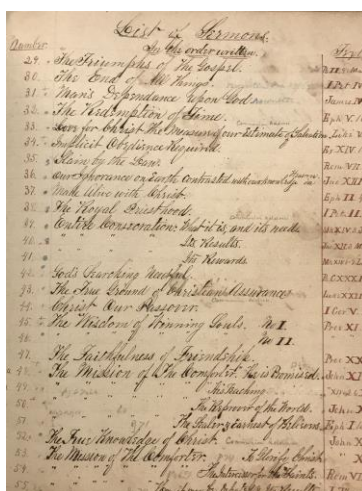 List of Sermons.
In the order written.
Number. Text
29. The Triumphs of the Gospel.
30. The End of All Things. I Pet IV
31. Man's Dependance upon God James IV
32. The Redemption of Time. Eph V
33. Love for Christ the Measure of our Estimate of Salvation Luke V
34. Implicit Obedience Required. XIV
35. Slain by the Law. Rom VII
36. Our Ignorance on Earth Contrasted with our Knowledge in Heaven XIII
37. Made Alive with Christ. Eph II
38. The Royal Priesthood. I Pet II
39. Entire Consecration: What it is, and its need
40. " " " Its Results.
41. " " " Its Rewards.
42. God's Searching Needful.
43. The True Ground of Christian Assurance
44. Christ Our Passover. I Cor V.
45. The Wisdom of Winning Souls. No I. Prov XI
46. " " " " " No II. "
47. The Faithfulness of Friendship. Prov XX
48. The Mission of the Comforter. He is Promised. John X
49. " " " " " His Teaching
50. " " " " " The Reprover of the World. John X
51. " " " " " The Sealer & Earnest of Believers. Eph I
52. The True Knowledge of Christ. John X
53. The Mission of the Comforter. To Glorify Christ X
54. " " " " " The Intercessor for the Saints. Rom V
55.